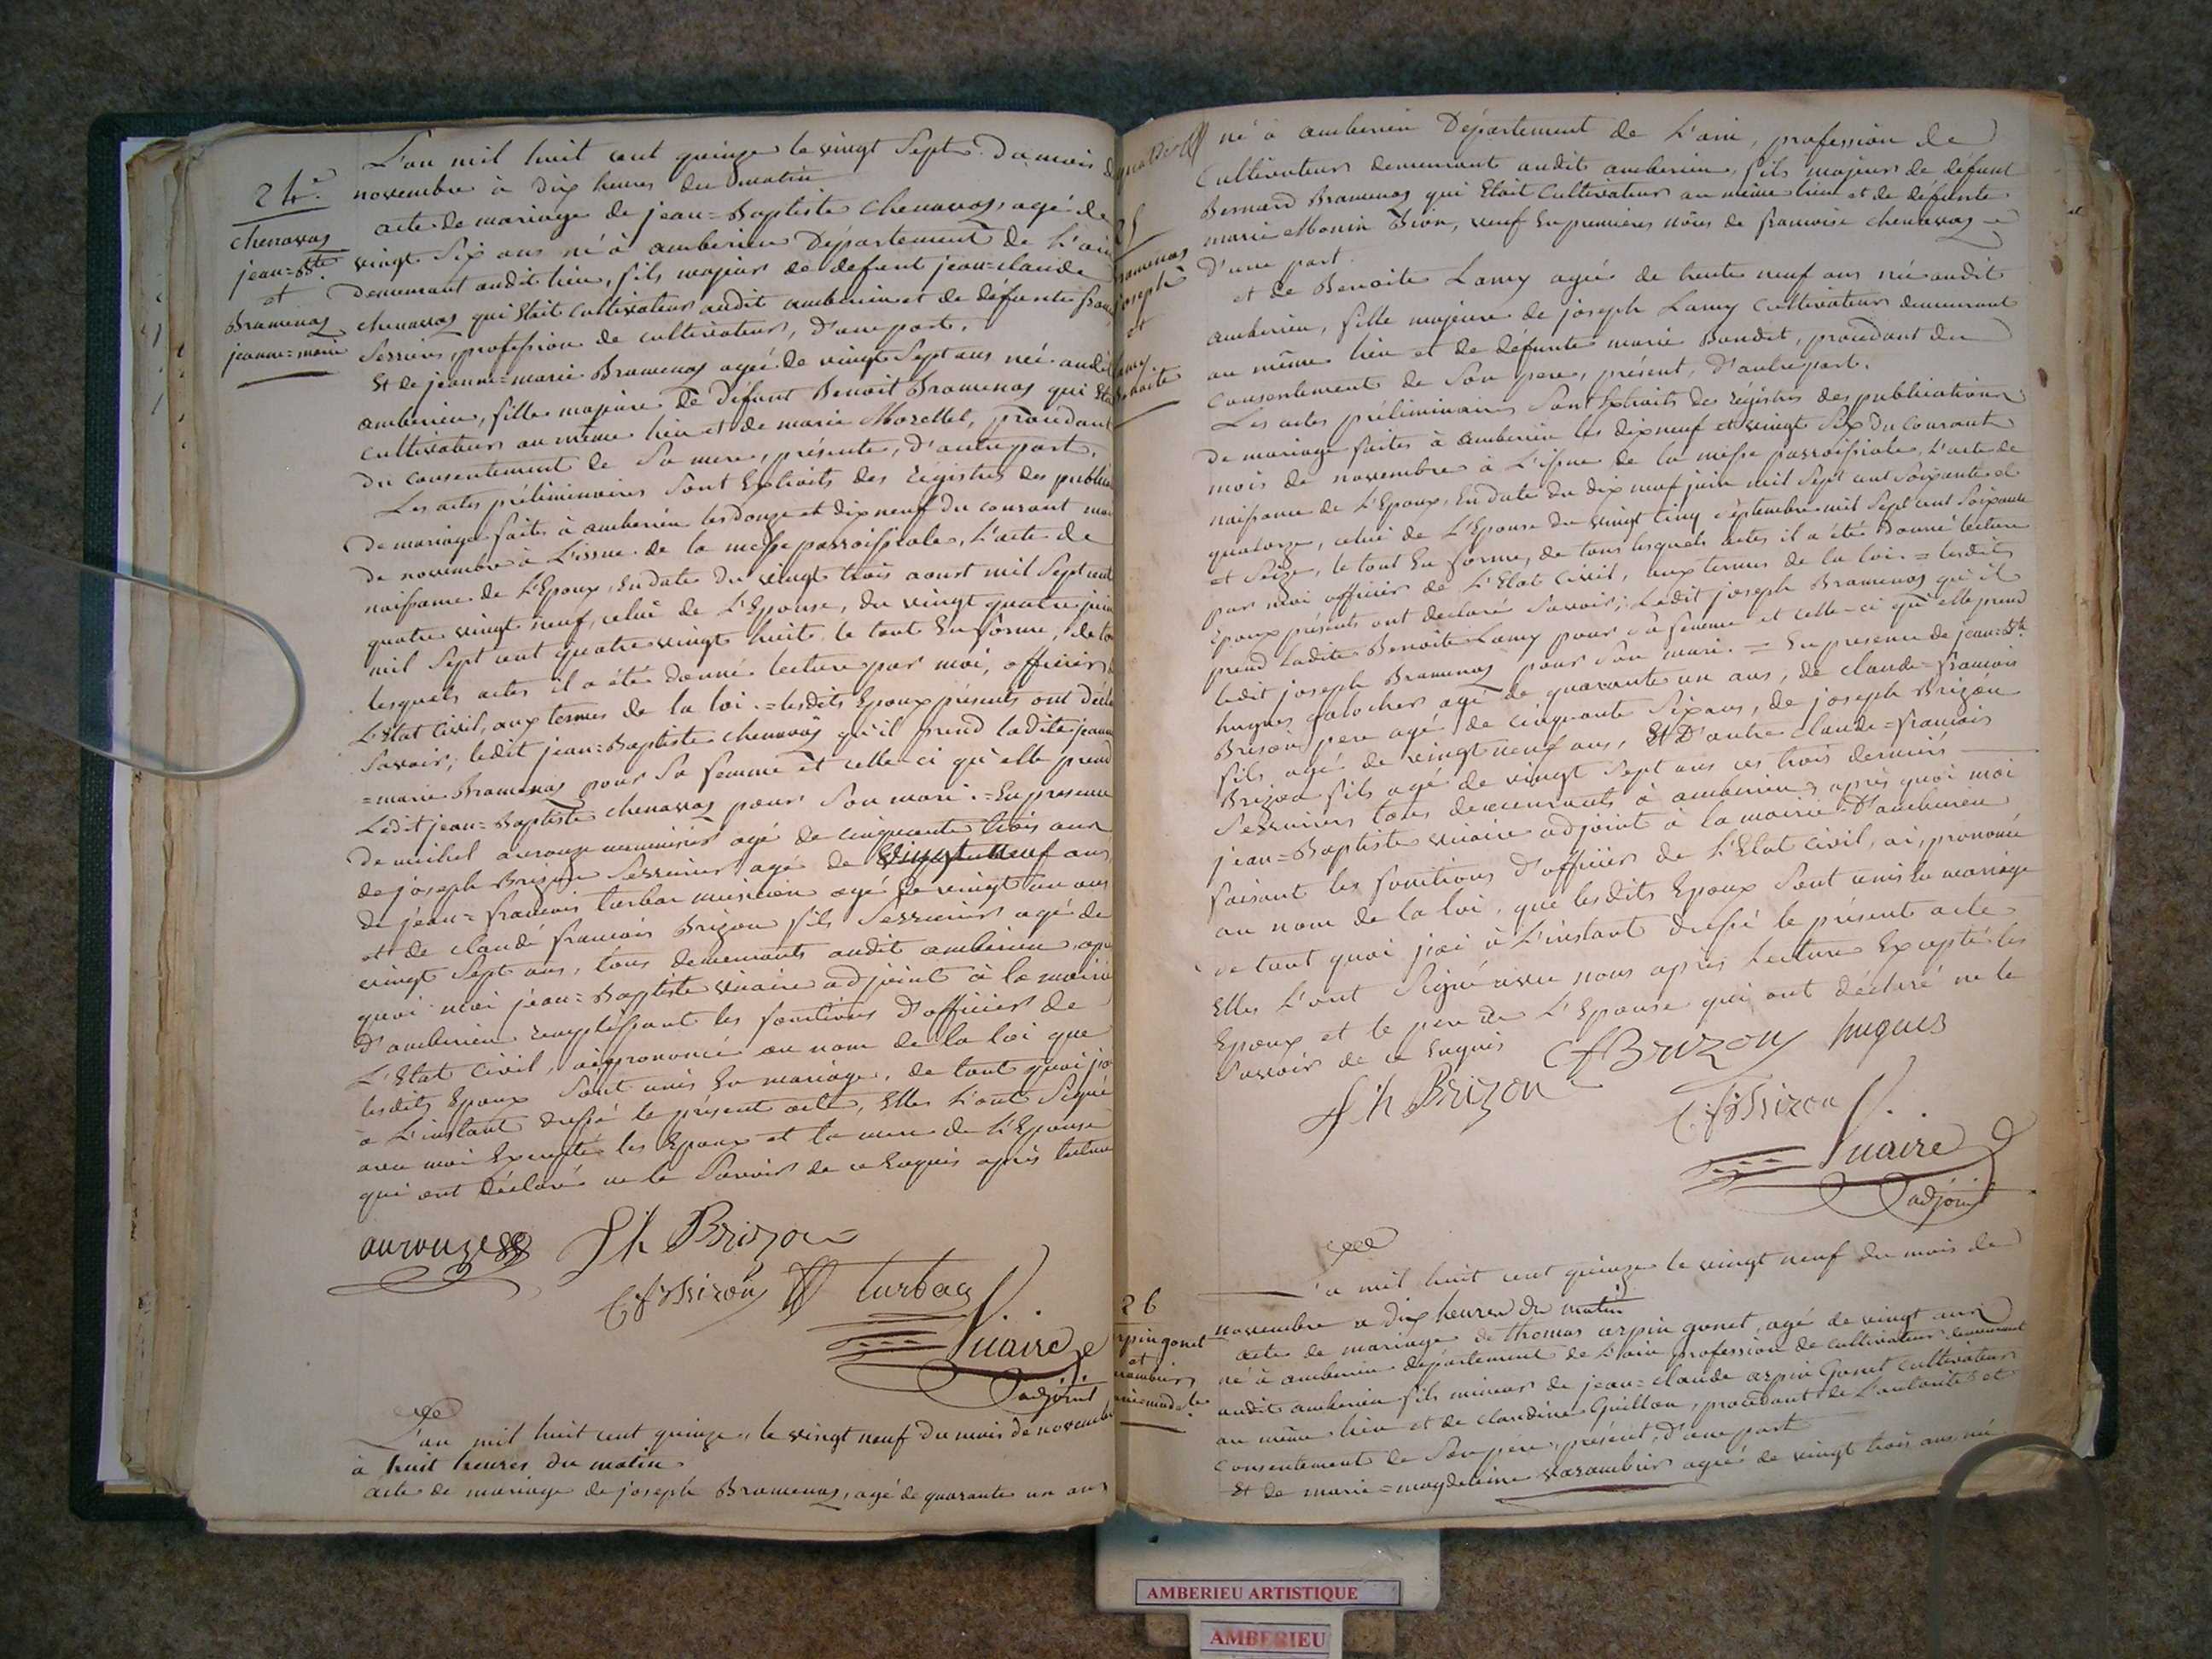 24e.
chenavas
jean=Bte
et
Bramenas
jeanne=marie
L'an mil huit cent quinze le vingt Sept du mois
novembre à dix heures du matin
acte de mariage de jean=Baptiste chenavas, agé de
vingt Six ans né à amberieu Département de L'ain
Demeurant audit lieu, fils majeur de defunt jean=claude
chenavas qui Etait cultivateur audit amberieu et de défunte
profession de cultivateur, d'une part.
Et de jeanne=marie Bramenas agée de vingt Sept ans née audit
amberieu, fille majeure de Défunt Benoit Bramenas qui
cultivateur au même lieu et de marie Morellet, procédant
du consentement de Sa mere, présente, d'autre part.
Les actes préliminaires Sont Extraits des régistres des
de mariage faite à amberieu les douze et dix neuf du courant
de novembre à L'issue de la messe parroissiale, L'acte de
naissance de L'Epoux, En date du vingt trois aoust mil Sept cent
quatre vingt neuf, celui de L'Epouse, du vingt quatre juin
mil Sept cent quatre vingt huit le tout En forme, de
lesquels actes il a été donné lecture par moi, officier
L'Etat Civil, aux termes de la loi. = lesdits Epoux présents ont
Savoir; ledit jean=Baptiste chenavas qu'il prend ladite
=marie Bramenas pour Sa femme et celle-ci qu'elle prend
Ledit jean=Baptiste chenavas pour Son mari. = En presence
de michel aurouze agé de cinquante trois ans
de joseph Brizon Serrurier agé de vingt neuf ans
de jean=francois turbas musicien agé de vingt un ans
et de claude francois Brizon fils Serrurier agé de
vingt Sept ans, tous demeurants audit amberieu,
quoi moi jean=Baptiste adjoint à la mairie
d'amberieu remplissant les fonctions d'officier de
L'Etat Civil, ai prononcé au nom de la loi que
lesdits Epoux Sont unis En mariage, de tout quoi
à L'instant dressé le présent acte, Elles L'ont Signé
avec moi Excepté les Epoux et la mere de L'Epouse
qui ont déclaré ne le Savoir de ce Enquis après lecture
aurouze Jh Brizon
CfBrizon turbas
adjoint
L'an mil huit cent quinze, le vingt neuf du mois de novembre
à huit heures du matin
acte de mariage de joseph Bramenas, agé de quarante un ans
25
joseph
et
né à amberieu Département de L'ain, profession de
Cultivateur demeurant audit amberieu, fils majeur de défunt
Bernard Bramenas qui Etait Cultivateur au même lieu et de defunte
marie Monin veuf En premières nôces de francoise chenavas
D'une part.
et de Benoite Lamy agée de trente neuf ans née audit
amberieu, fille majeure de joseph Lamy Cultivateur demeurant
au même lieu et de défunte marie Bondet, procédant du
Consentement de Son pere, présent, D'autre part.
Les actes préliminaires Sont Extraits des régistres des publications
De mariage faites à amberieu les dix neuf et vingt Six du courant
mois de novembre à L'issue de la messe parroissiale, L'acte de
naissance de L'Epoux, En date du dix neuf juin mil Sept cent Soixante et
quatorze, celui de L'Epouse du vingt cinq Septembre mil Sept cent Soixante
et Seize, le tout En forme, de tous lesquels actes il a été donné lecture
par moi officier de L'Etat Civil, aux termes de la loi. = lesdits
Epoux présents ont declaré Savoir; Ledit joseph Bramenas qu'il
prend Ladite Benoite Lamy pour Sa femme et celle-ci qu'elle prend
ledit joseph Bramenas pour Son mari. = En presence de jean=Bte
hugues agé de quarante un ans, de claude=francois
Brison pere agé de cinquante Six ans, de joseph Brizon
fils agé de vingt neuf ans, Et D'autre claude=francois
Brizon fils agé de vingt Sept ans ces trois derniers
Serruriers tous demeurants à amberieu, après quoi moi
jean=Baptiste adjoint à la mairie D'amberieu
faisant les fonctions d'officier de L'Etat Civil, ai, prononcé
au nom de la loi, que lesdits Epoux Sont unis En mariage
de tout quoi j'ai à L'instant dressé le présent acte
Elles L'ont Signé avec nous après Lecture Excepté les
Epoux et le pere de L'Epouse qui ont déclaré ne le
Savoir de ce Enquis CfBrizon hugues
Jh Brizon
CfBrizon
adjoint
26
et
mil huit cent quinze le vingt neuf du mois de
novembre a dix heures du matin
acte de mariage de thomas arpin gonet, agé de vingt ans
né à amberieu département de L'ain profession de cultivateur demeurant
audit amberieu fils mineur de jean=claude arpin Gonet cultivateur
au même lieu et de claudine Guillon, procédant de L'autorité et
consentement de Son père, présent, d'une part
Et de marie=magdeleine varambier agée de vingt trois ans née
AMBERIEU ARTISTIQUE
AMBERIEU